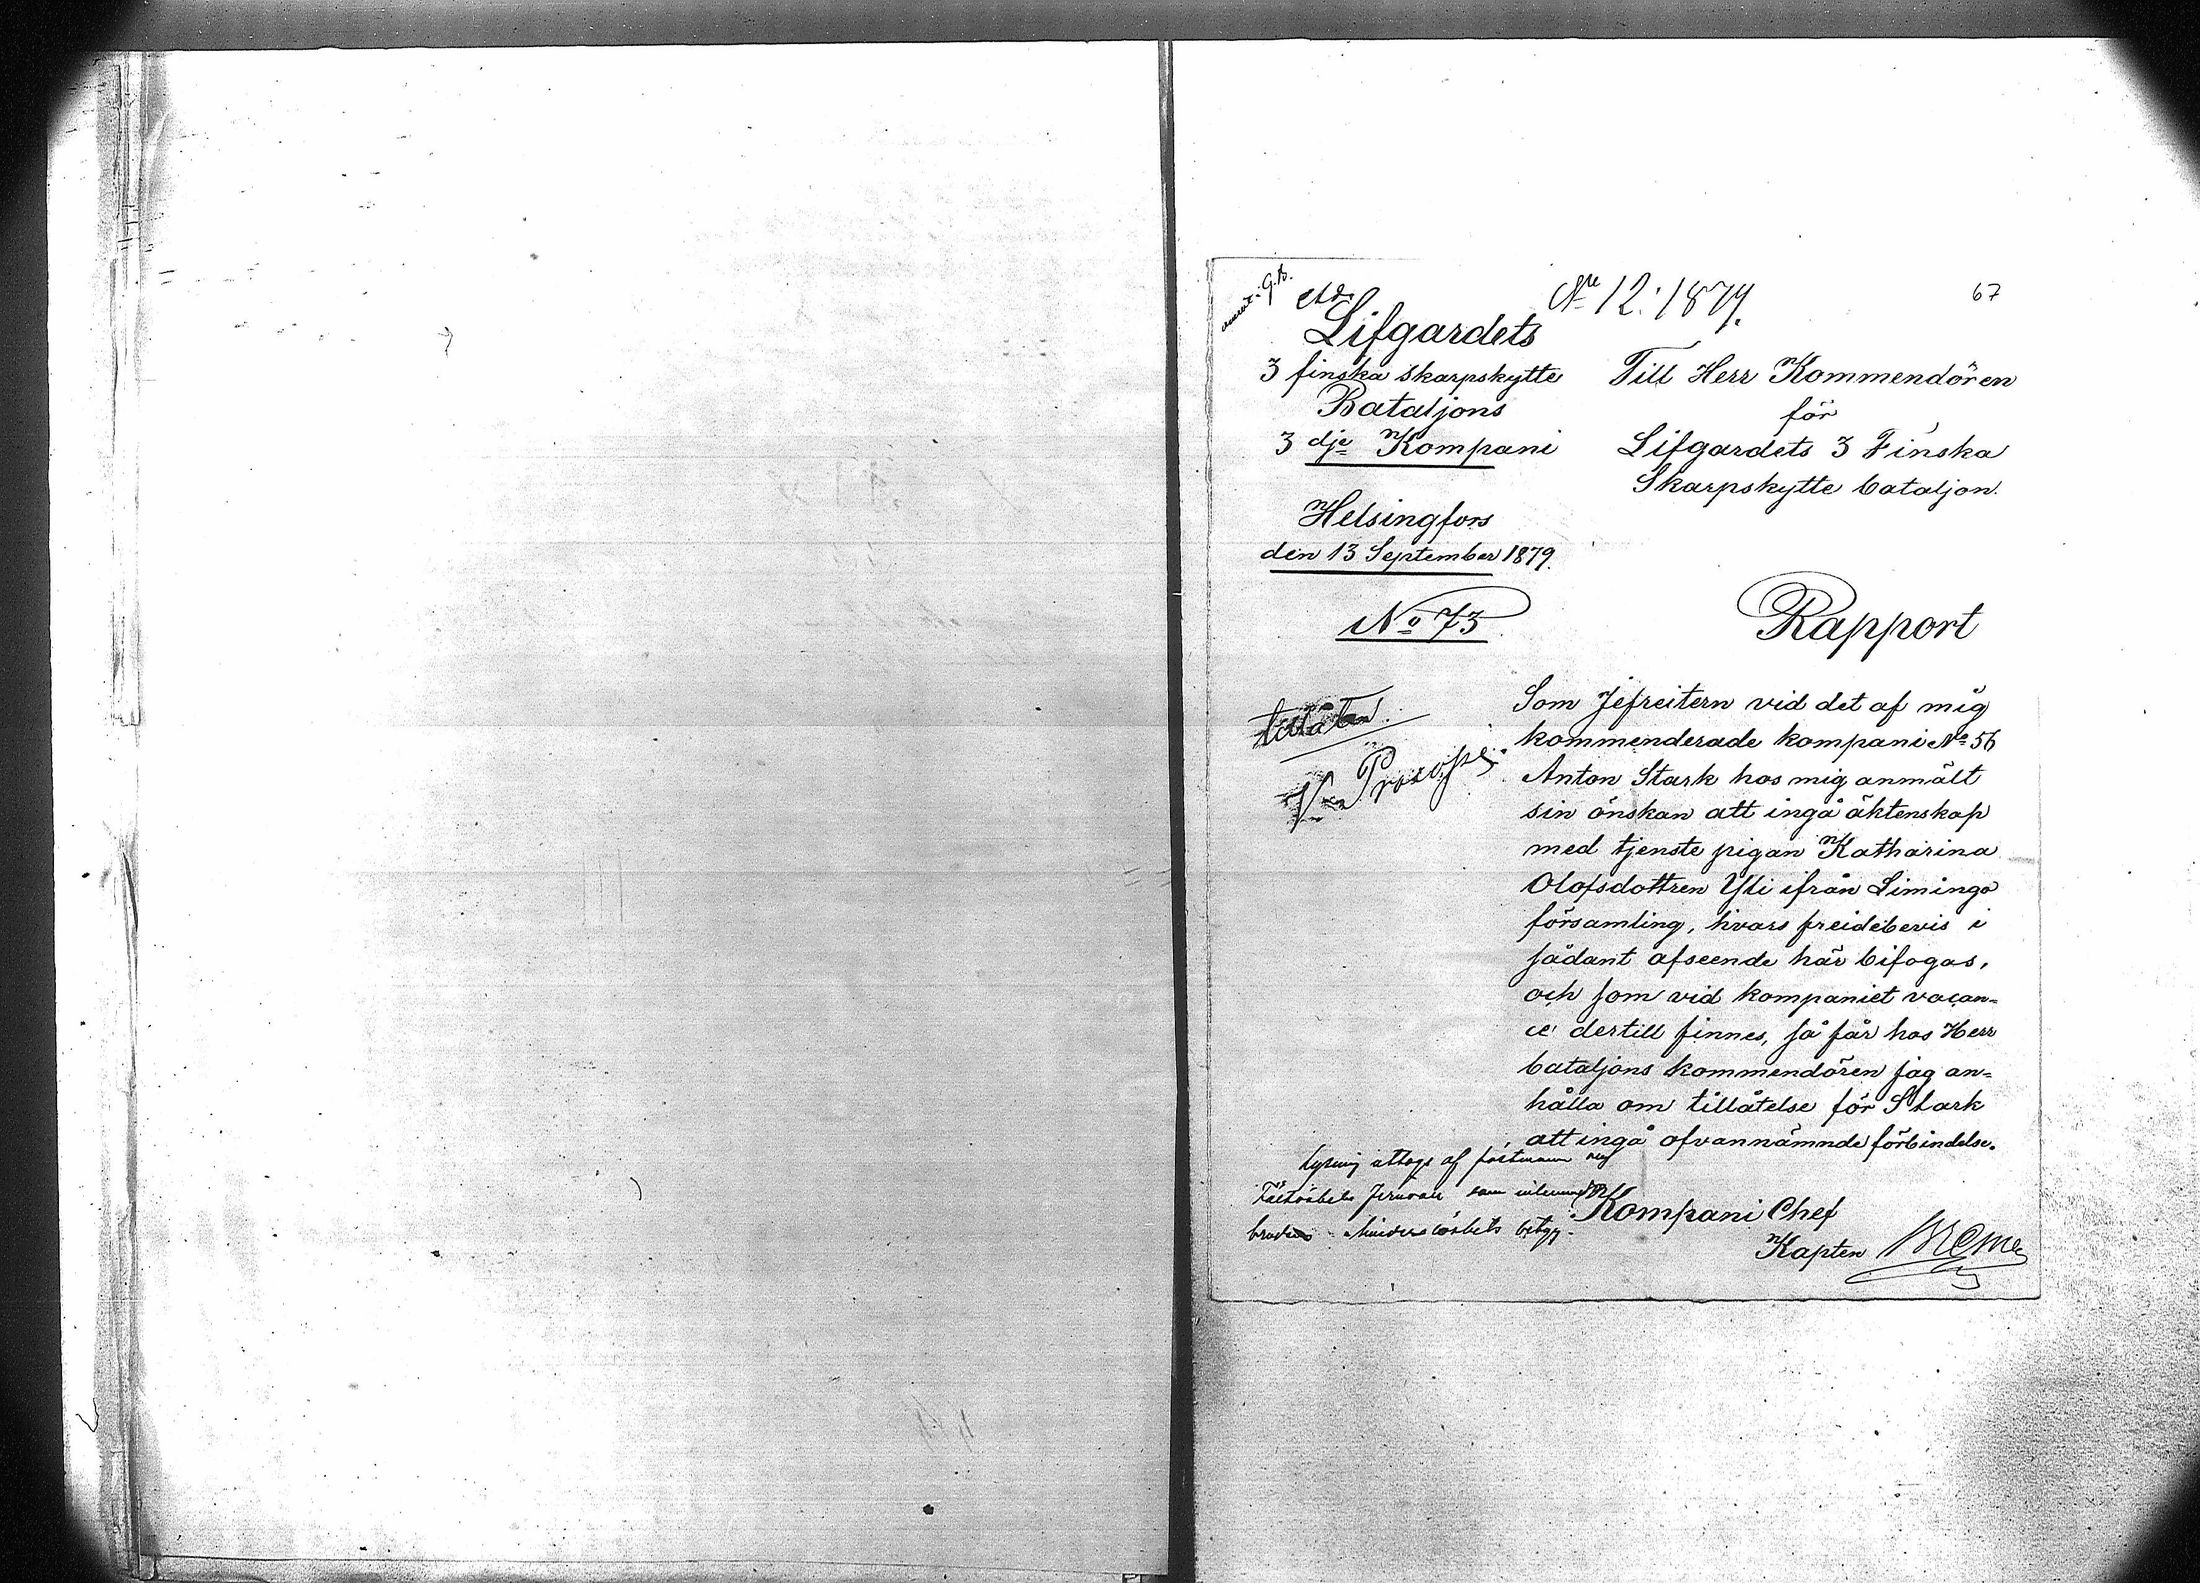 Nr 12. 1879.
67
Lifgardets
3 finska skarpskytte
Bataljons
3 dje Kompani
Helsingfors
den 13 September 1879.
No 73
Till Herr Kommendören
för
Lifgardets 3 Finska
Skarpskytte bataljon.
Rapport
tillåten.
V. Procopé.
Som Jefreitern vid det af mig
kommenderade kompani No 56
Anton Stark hos mig anmält
sin önskan att ingå äktenskap
med tjenste pigan Katharina
Olofsdottren Yli ifrån Limingo
församling, hvars freidebevis i
sådant afseende här bifogas,
och som vid kompaniet vacan=
ce dertill finnes, så får hos Herr
bataljons kommendören jag an=
hålla om tillåtelse för Stark
att ingå ofvannämnde förbindelse.
Lysning uttogs af
som
betyg.
Kompani Chef
Kapten